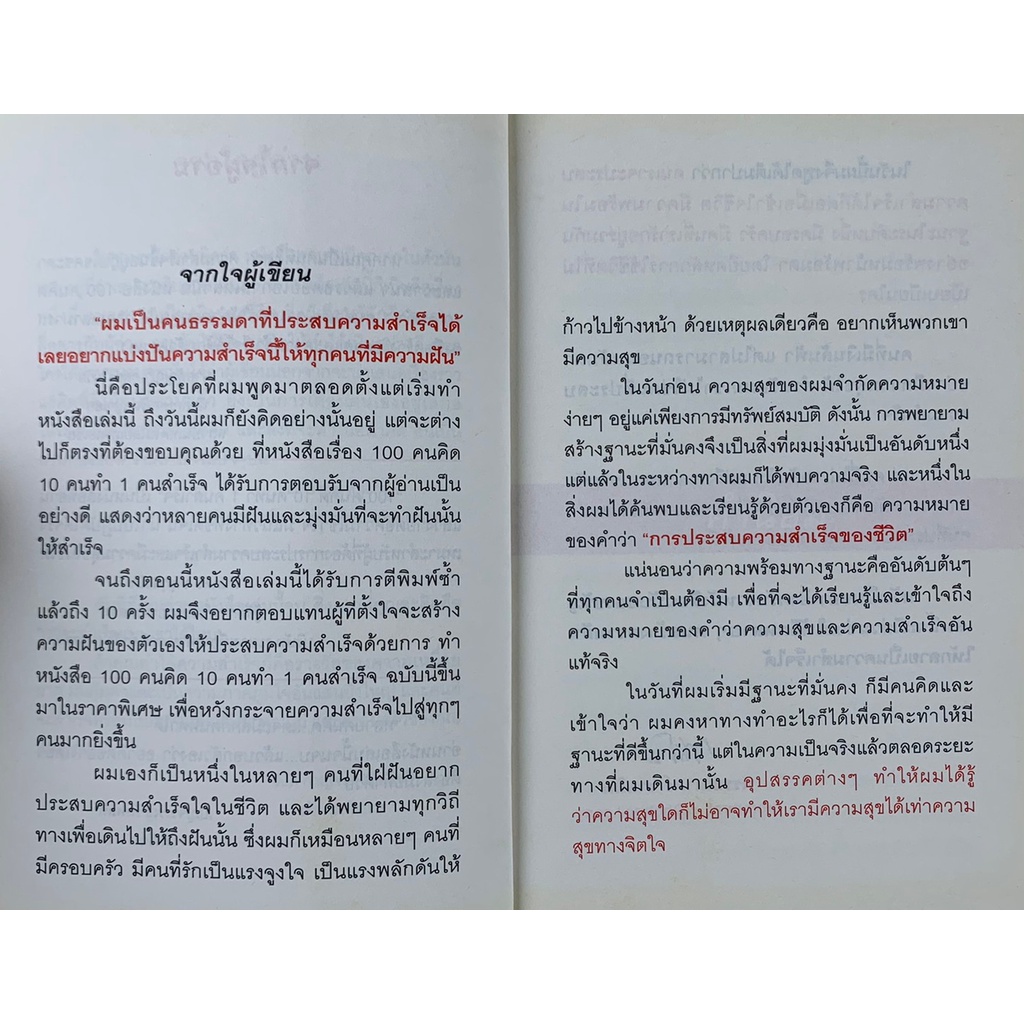 จากใจผู้เขียน
"ผมเป็นคนธรรมดาที่ประสบความสำเร็จได้
เลยอยากแบ่งปันความสำเร็จนี้ให้ทุกคนที่มีความฝัน"
นี่คือประโยคที่ผมพูดมาตลอดตั้งแต่เริ่มทำ
หนังสือเล่มนี้ ถึงวันนี้ผมก็ยังคิดอย่างนั้นอยู่ แต่จะต่าง
ไปก็ตรงที่ต้องขอบคุณด้วย ที่หนังสือเรื่อง 100 คนคิด
10 คนทำ 1 คนสำเร็จ ได้รับการตอบรับจากผู้อ่านเป็น
อย่างดี แสดงว่าหลายคนมีฝันและมุ่งมั่นที่จะทำฝันนั้น
ให้สำเร็จ
จนถึงตอนนี้หนังสือเล่มนี้ได้รับการตีพิมพ์ซ้ำ
แล้วถึง 10 ครั้ง ผมจึงอยากตอบแทนผู้ที่ตั้งใจจะสร้าง
ความฝันของตัวเองให้ประสบความสำเร็จด้วยการ ทำ
หนังสือ 100 คนคิด 10 คนทำ 1 คนสำเร็จ ฉบับนี้ขึ้น
มาในราคาพิเศษ เพื่อหวังกระจายความสำเร็จไปสู่ทุกๆ
คนมากยิ่งขึ้น
ผมเองก็เป็นหนึ่งในหลายๆ คนที่ใฝ่ฝันอยาก
ประสบความสำเร็จใจในชีวิต และได้พยายามทุกวิถี
ทางเพื่อเดินไปให้ถึงฝันนั้น ซึ่งผมก็เหมือนหลายๆ คนที่
มีครอบครัว มีคนที่รักเป็นแรงจูงใจ เป็นแรงพลักดันให้
ก้าวไปข้างหน้า ด้วยเหตุผลเดียวคือ อยากเห็นพวกเขา
มีความสุข
ในวันก่อน ความสุขของผมจำกัดความหมาย
ง่ายๆ อยู่แค่เพียงการมีทรัพย์สมบัติ ดังนั้น การพยายาม
สร้างฐานะที่มั่นคงจึงเป็นสิ่งที่ผมมุ่งมั่นเป็นอันดับหนึ่ง
แต่แล้วในระหว่างทางผมก็ได้พบความจริง และหนึ่งใน
สิ่งผมได้ค้นพบและเรียนรู้ด้วยตัวเองก็คือ ความหมาย
ของคำว่า "การประสบความสำเร็จของชีวิต"
แน่นอนว่าความพร้อมทางฐานะคืออันดับต้นๆ
ที่ทุกคนจำเป็นต้องมี เพื่อที่จะได้เรียนรู้และเข้าใจถึง
ความหมายของคำว่าความสุขและความสำเร็จอัน
แท้จริง
ในวันที่ผมเริ่มมีฐานะที่มั่นคง ก็มีคนคิดและ
เข้าใจว่า ผมคงหาทางทำอะไรก็ได้เพื่อที่จะทำให้มี
ฐานะที่ดีขึ้นกว่านี้ แต่ในความเป็นจริงแล้วตลอดระยะ
ทางที่ผมเดินมานั้น อุปสรรคต่างๆ ทำให้ผมได้รู้
ว่าความสุขใดก็ไม่อาจทำให้เรามีความสุขได้เท่าความ
สุขทางจิตใจ